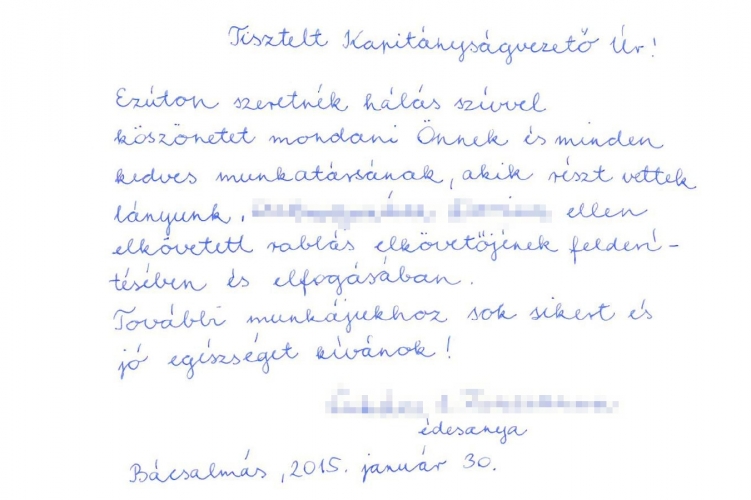 Tisztelt Kapitányságvezető Úr!
Ezúton szeretnék hálás szívvel
köszönetet mondani Önnek és minden
kedves munkatársának, akik részt vettek
lányunk, ellen
elkövetett rablás elkövetőjének felderí-
tésében és elfogásában.
További munkájukhoz sok sikert és
jó egészséget kívánok!
édesanya
Bácsalmás, 2015. január 30.